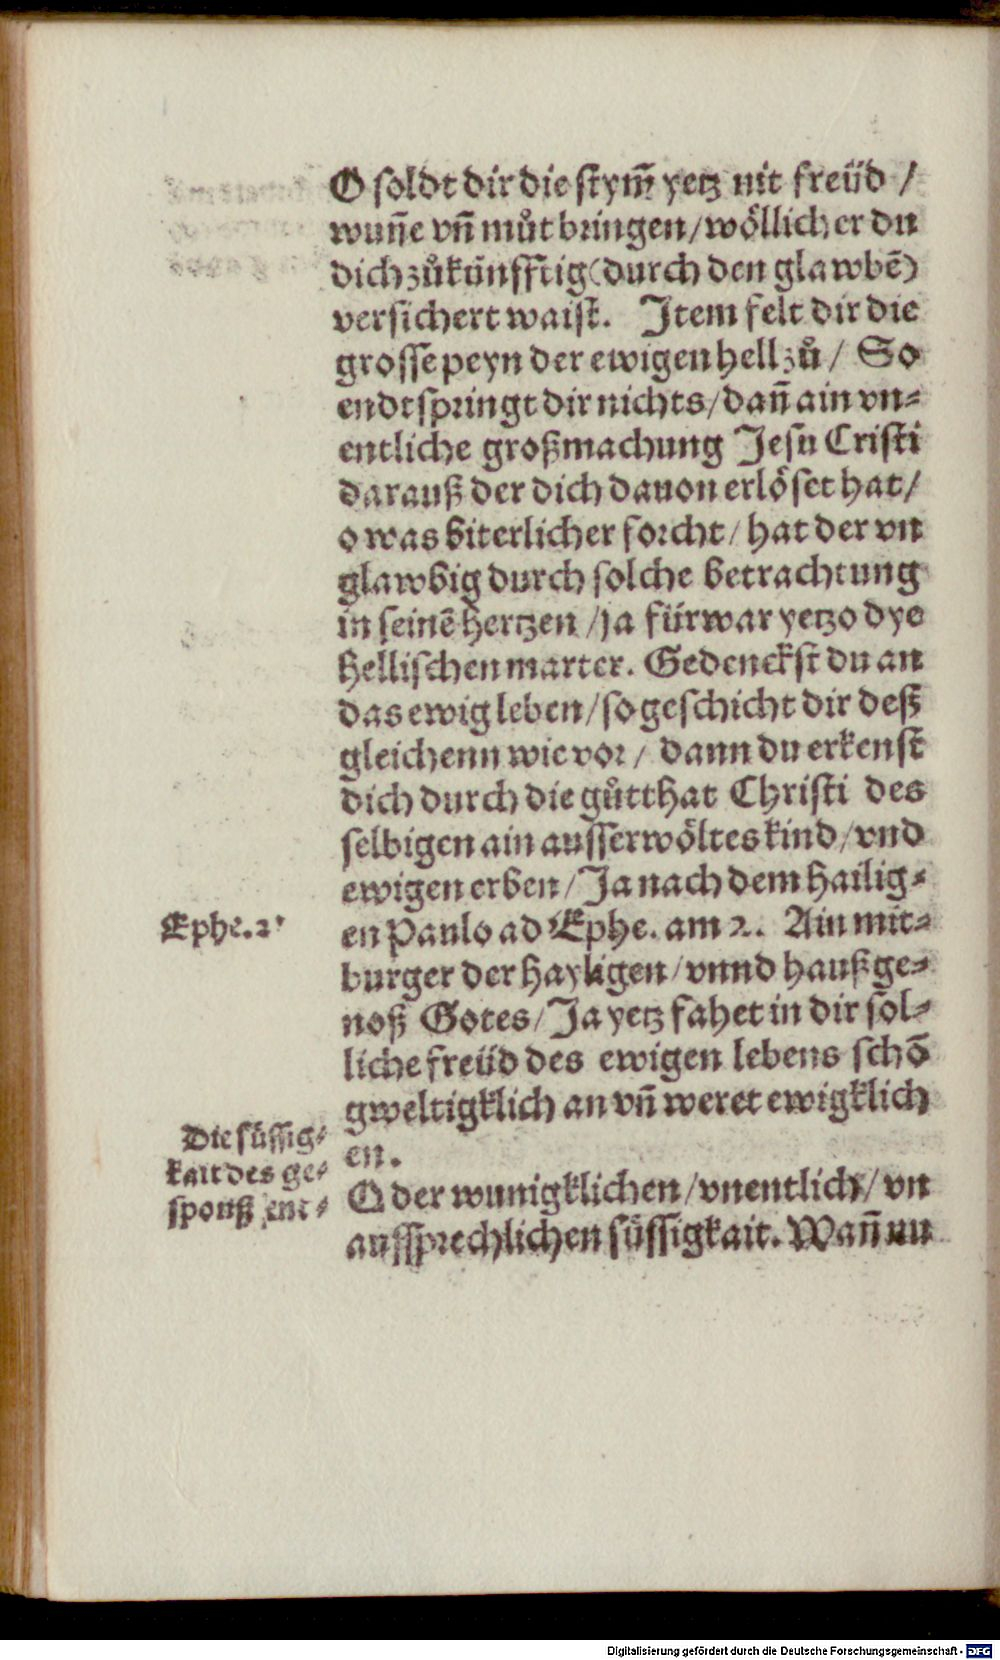 O soldt dir die stym̃ yetz nit freüd /
wuñe vñ můt bringen / wöllicher du
dich zůkünfftig (durch den glawbẽ)
versichert waist. Item felt dir die
grosse peyn der ewigen hell zů / So
endtspringt dir nichts / dañ ain vn⸗
entliche großmachung Jesu Cristi
darauß der dich dauon erlöset hat /
o was biterlicher forcht / hat der vn
glawbig durch solche betrachtung
in seinẽ hertzen / ja fürwar yetzo dye
hellischen marter. Gedenckst du an
das ewig leben / so geschicht dir deß
gleichenn wie vor / dann du erkenst
dich durch die gůtthat Christi des
selbigen ain ausserwöltes kind / vnd
ewigen erben / Ja nach dem hailig⸗
Ephe. 2.
en Paulo ad Ephe. am 2. Ain mit⸗
burger der hayligen / vnnd haußge⸗
noß Gotes / Ja yetz fahet in dir sol⸗
liche freüd des ewigen lebens schõ
gweltigklich an vñ weret ewigklich
en.
Die süssig⸗
kait des ge⸗
sponß ent⸗
O der wunigklichen / vnentlich / vn
aussprechlichen süssigkait. Wañ nu
Digitalisierung gefördert durch die Deutsche Forschungsgemeinschaft - DFG